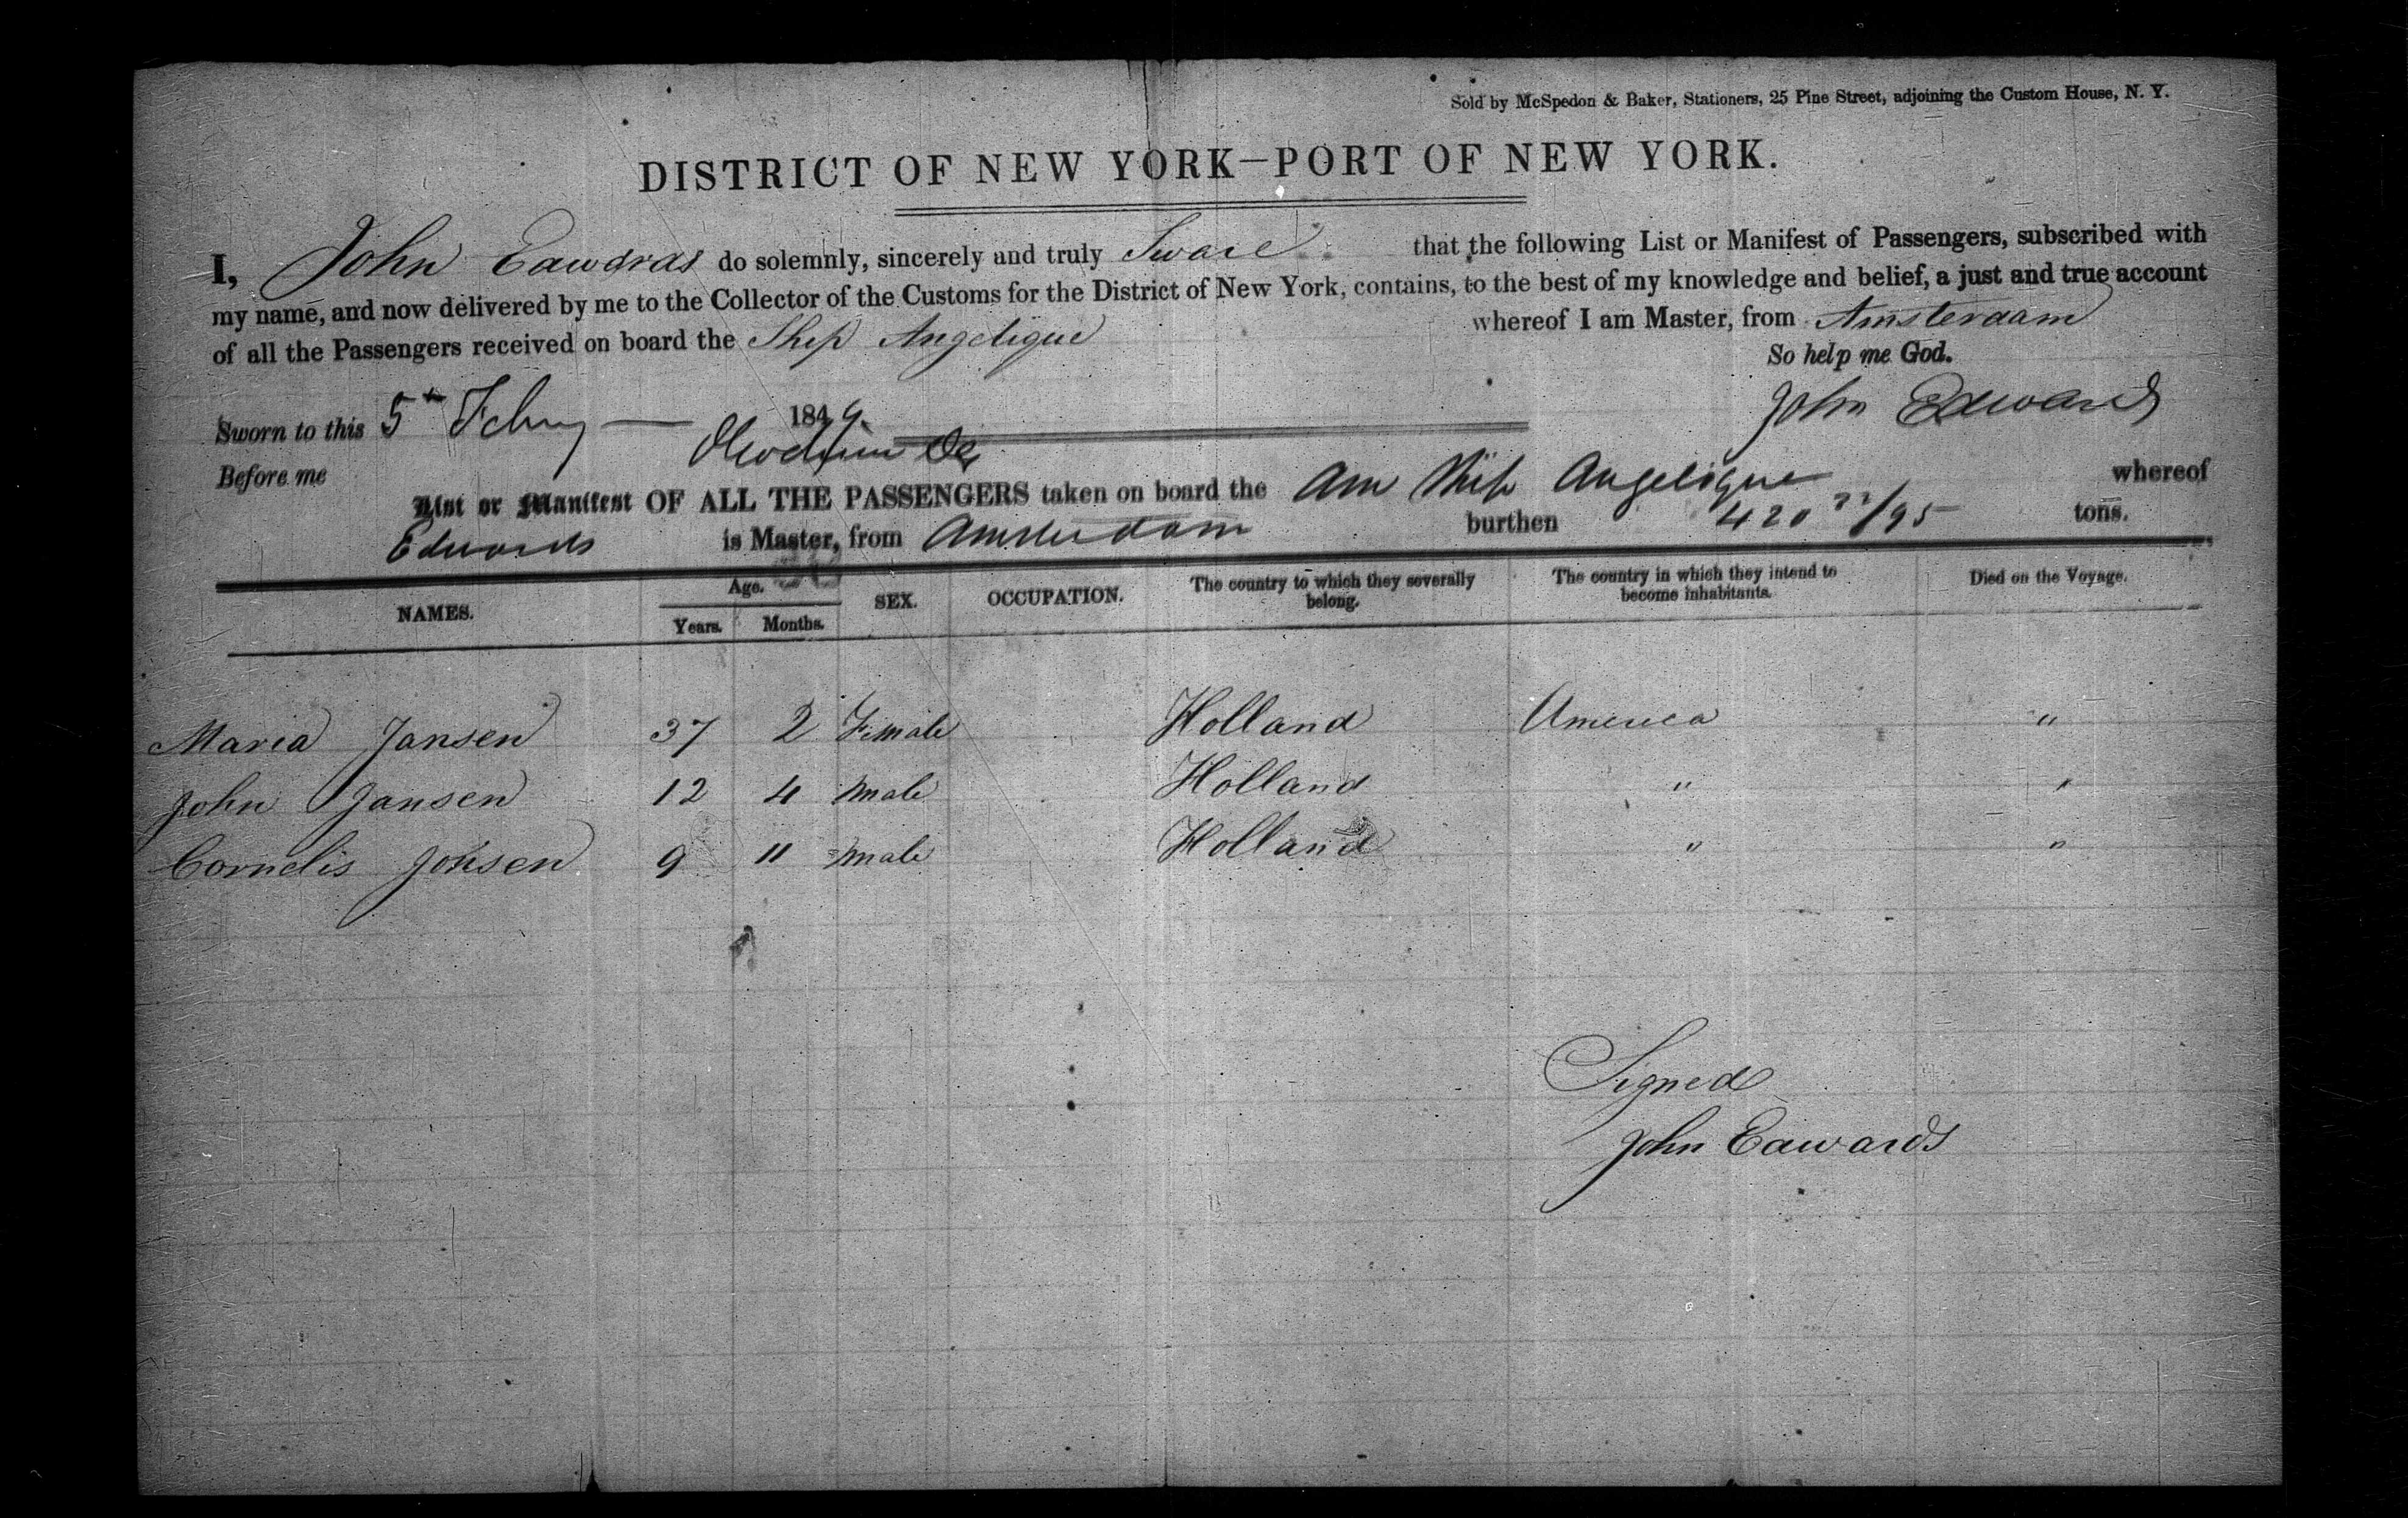 Sold by McSpedon & Baker, Stationers, 25 Pine Street, adjoining the Custom House, N. Y.
DISTRICT OF NEW YORK—PORT OF NEW YORK.
I, John Eawdras do solemnly, sincerely and truly Sware that the following List or Manifest of Passengers, subscribed with
my name, and now delivered by me to the Collector of the Customs for the District of New York, contains, to the best of my knowledge and belief, a just and true account
of all the Passengers received on board the Ship Angelique whereof I am Master, from Amsterdam
So help me God.
Sworn to this 5th Febry — 1849 John Edwards
Before me
List or Manifest OF ALL THE PASSENGERS taken on board the Am Ship Angelique whereof
Edwards is Master, from Amsterdam burthen 420 /95 tons.
NAMES. Age. Years. Months. SEX. OCCUPATION. The country to which they severally belong. The country in which they intend to become inhabitants. Died on the Voyage.
Maria Jansen 37 2 Female Holland America "
John Jansen 12 4 male Holland " "
Cornelis Jonsen 9 11 male Holland " "
Signed
John Eawards